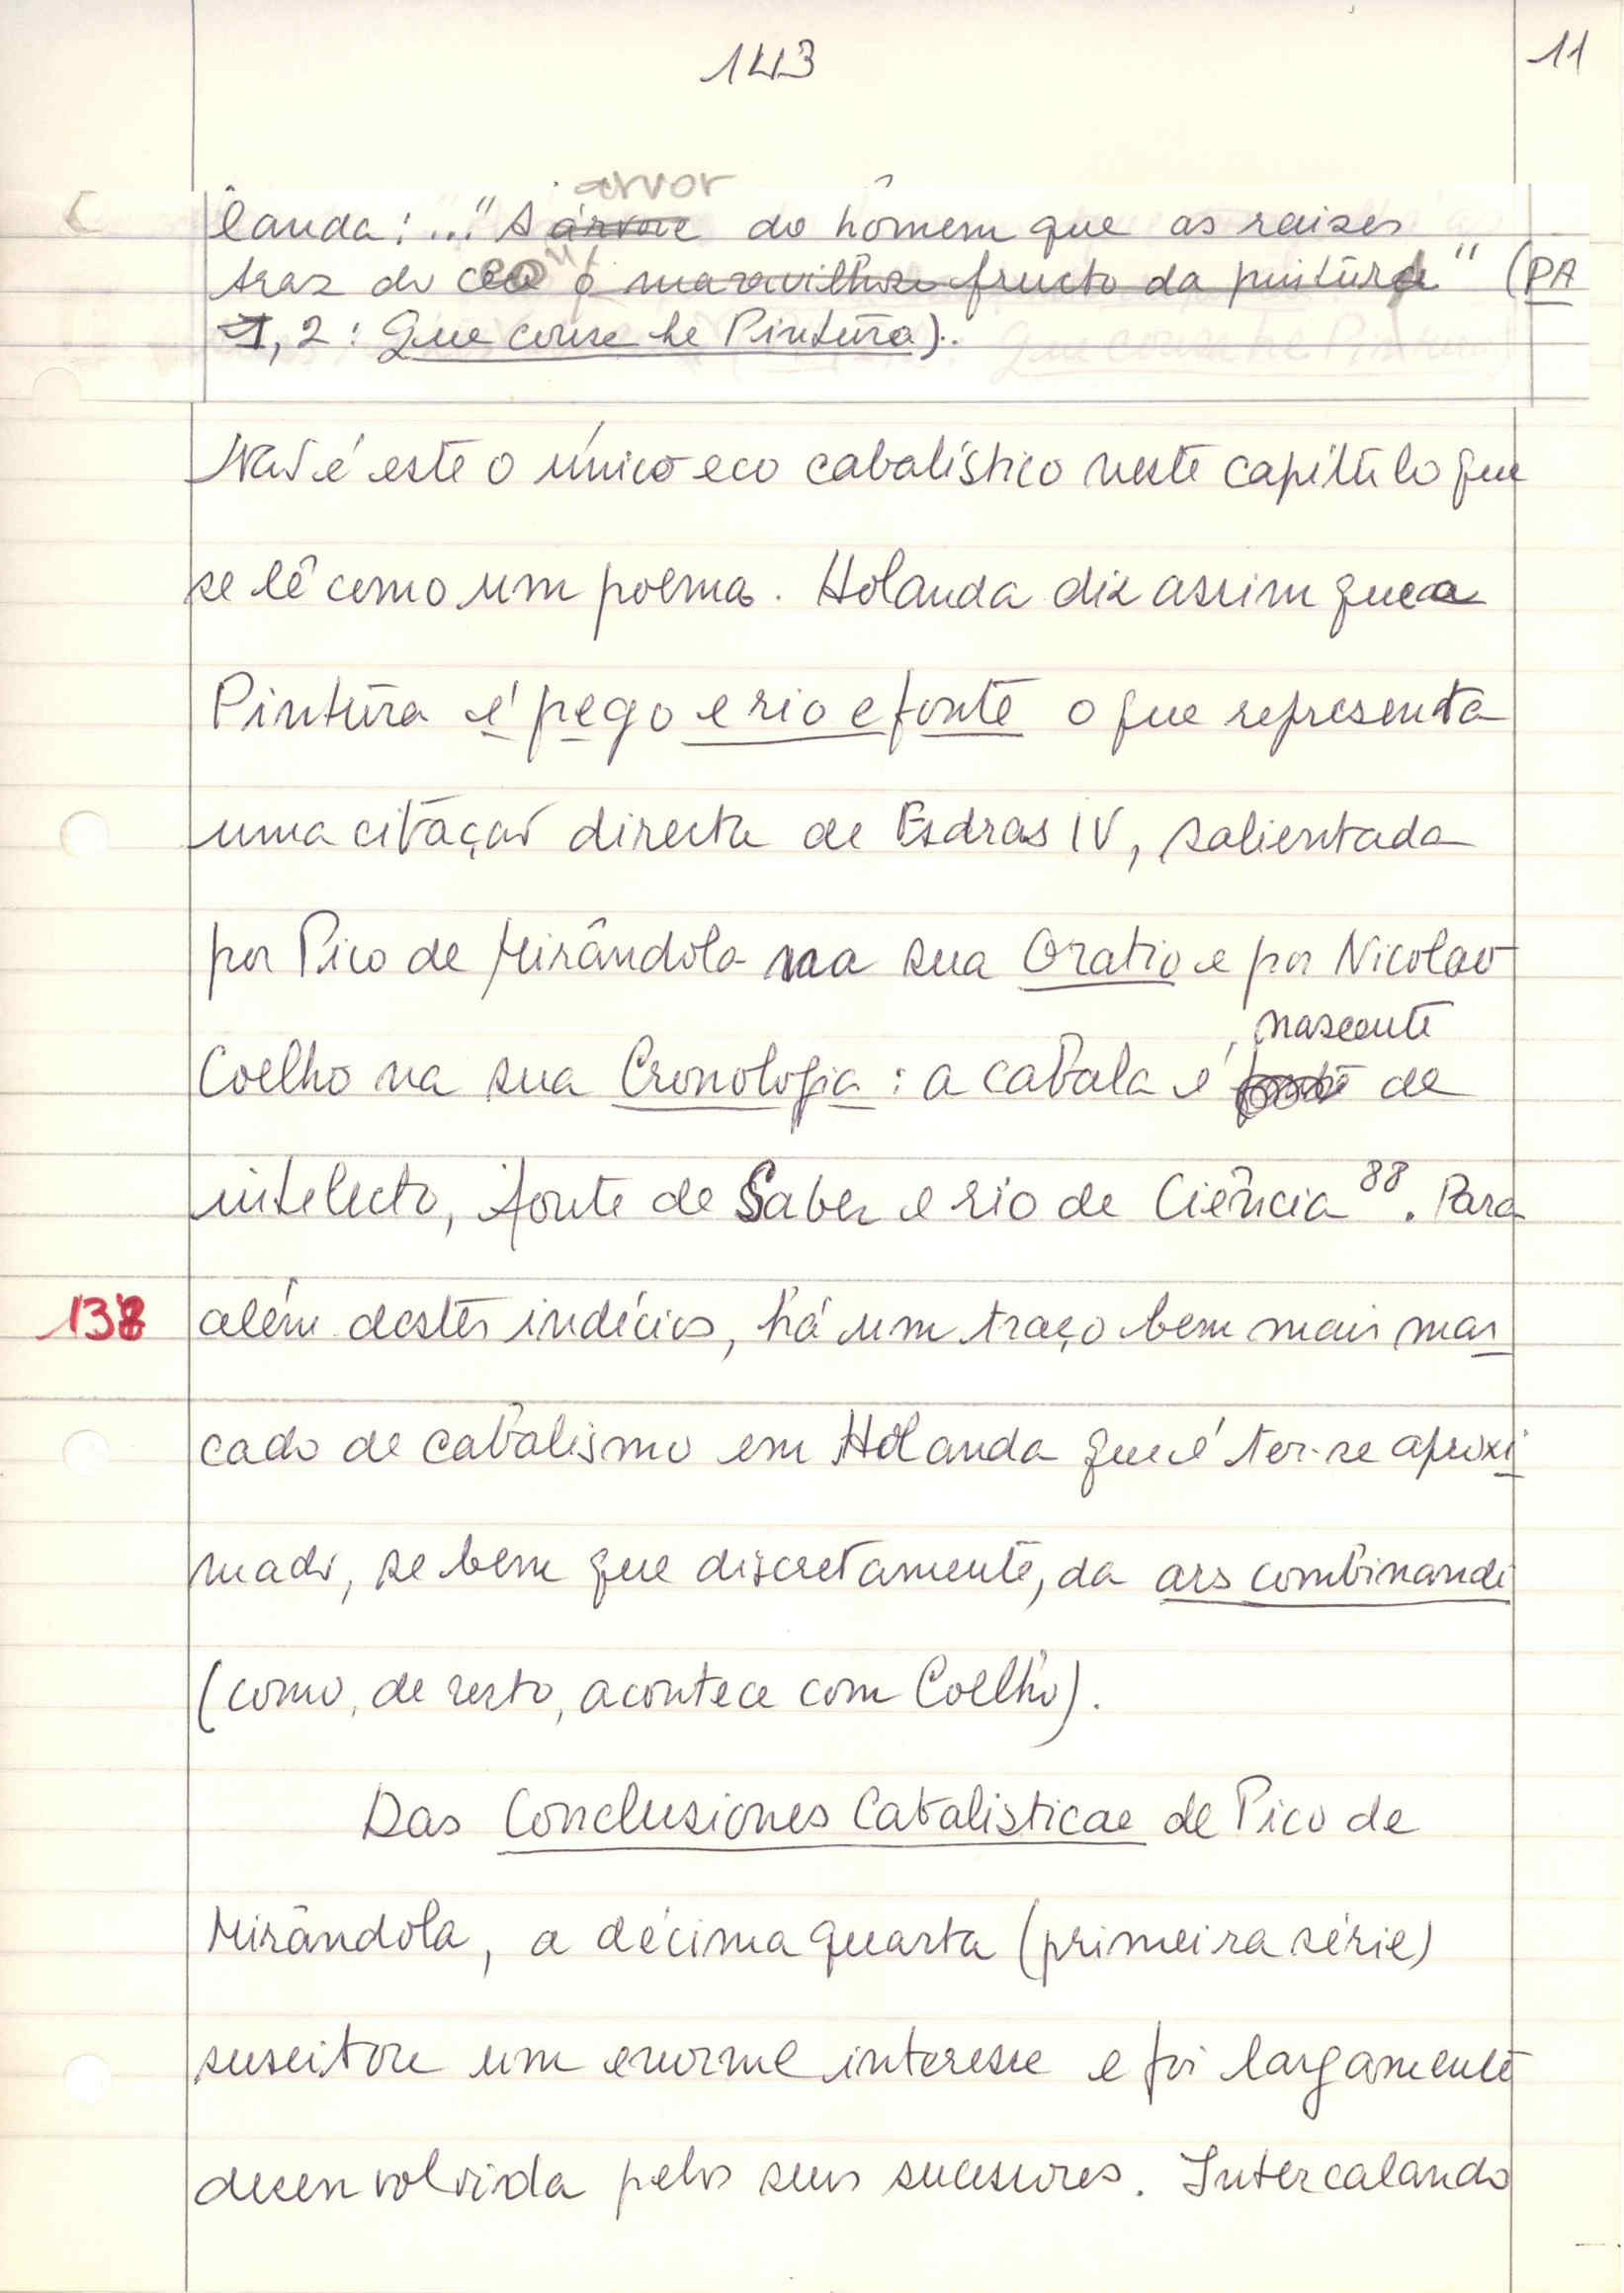 143
11
arvor
landa: ..." A árvore do hômem que as raizes
traz do ceo o maravilhoso fructo da pintura" (PA
1, 2: Que couse he Pintura).
Não é este o único eco cabalístico neste capítulo que
se lê como um poema. Holanda diz assim que a
Pintura é pego e rio e fonte o que representa
uma citação directa de Esdras IV, salientada
por Pico de Mirândola na sua Oratio e por Nicolao
nascente
Coelho na sua Cronologia: a cabala é fonte de
intelecto, fonte de Saber e rio de Ciência 88. Para
138 além destes indícios, há um traço bem mais mar
cado de cabalismo em Holanda que é ter-se aproxi
mado, se bem que discretamente, da ars combinandi
(como, de resto, acontece com Coelho).
Das Conclusiones Cabalisticae de Pico de
Mirândola, a décima quarta (primeira série)
suscitou um enorme interesse e foi largamente
desenvolvida pelos seus sucessores. Intercalando